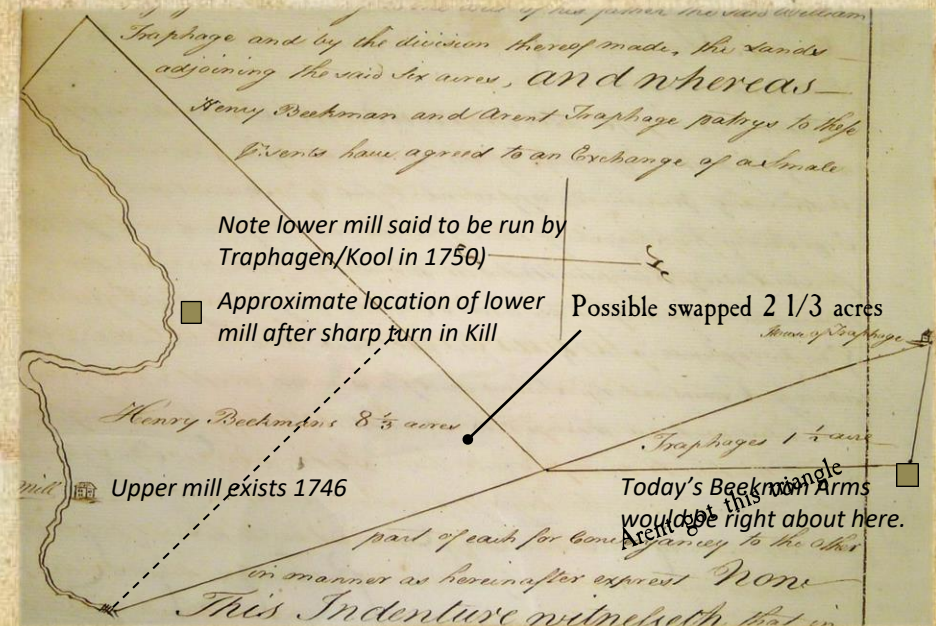 of his father the said William
Traphage and by the division thereof made, the Lands
adjoining the said Six acres, and whereas
Henry Beekman and Arent Traphage partys to these
Presents have agreed to an Exchange of a Small
Note lower mill said to be run by
Traphagen/Kool in 1750)
Approximate location of lower
mill after sharp turn in Kill
Possible swapped 2 1/3 acres
House of Traphage
Henry Beekmans 8 1/3 acres
Traphages 1 1/2 acre
mill
Upper mill exists 1746
Today’s Beekman Arms
would be right about here.
Arent got this triangle
part of each for Conveyancy to the other
in manner as hereinafter express Now
This Indenture witnesseth that in